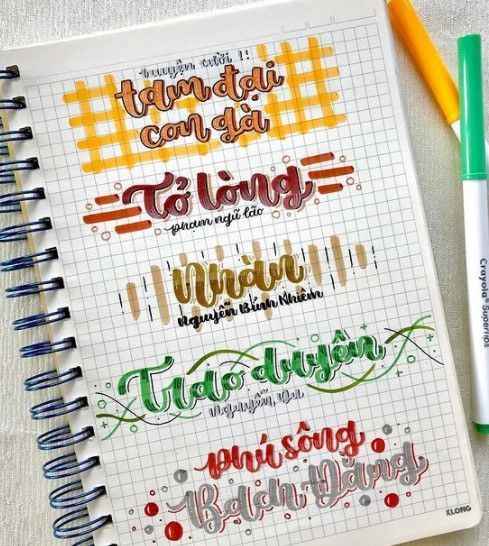 truyện cười !!
tam đại
con gà
Tỏ lòng
phạm ngũ lão
Nhàn
Nguyễn Bỉnh Khiêm
Trao duyên
Nguyễn Du
phú sông
Bạch Đằng
KLONG
Crayola Supertips